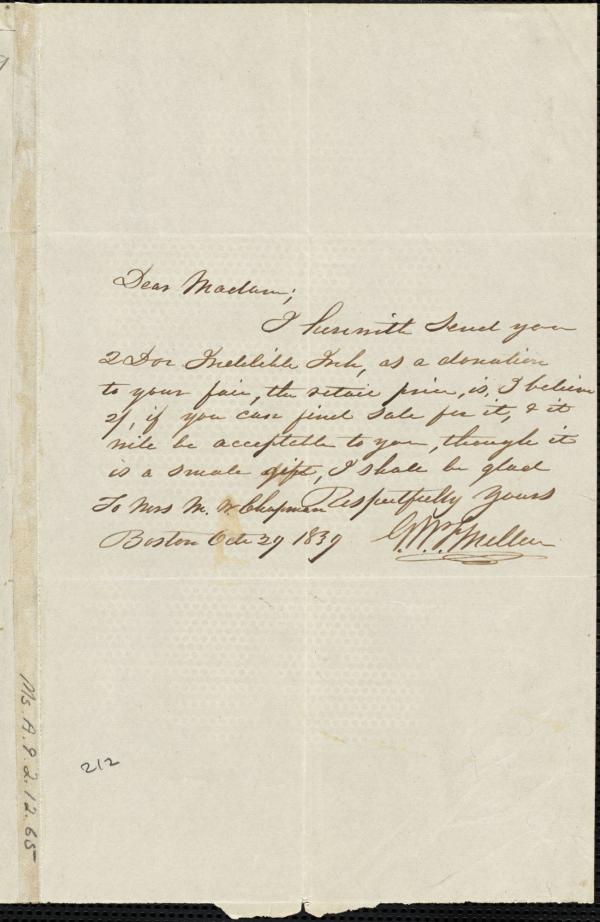 Dear Madam;
I herewith Send you
2 Doz Indelible Ink, as a donation
to your fair, the retail price, is, I believe
2/, if you can find Sale for it, & it
will be acceptable to you, though it
is a small gift, I shall be glad
To Mrs M. W Chapman Respectfully Yours
Boston Oct 29 1839 G. W. F. Mellen
212
Ms. A. 9. 2. 12. 65